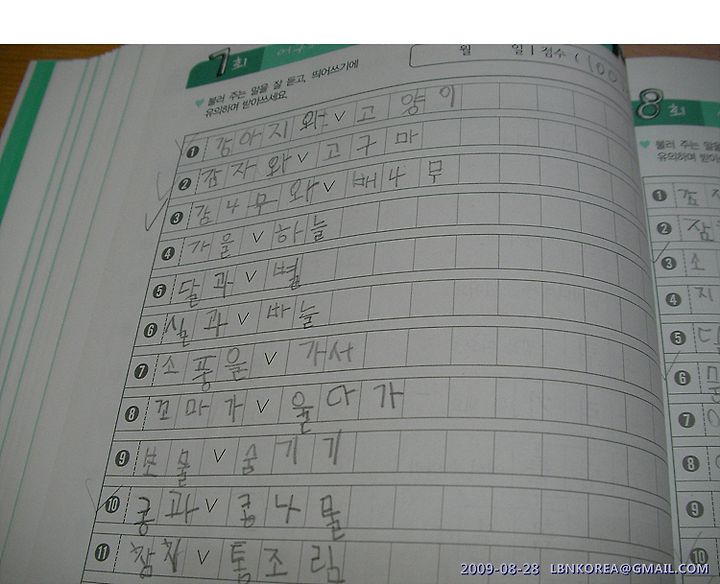 7회
월 일 | 점수 ( 100
불러 주는 말을 잘 듣고, 띄어쓰기에
유의하며 받아쓰세요.
1 강아지와 ∨ 고양이
2 감자와 ∨ 고구마
3 감나무와 ∨ 배나무
4 가을 ∨ 하늘
5 달과 ∨ 별
6 실과 ∨ 바늘
7 소풍을 ∨ 가서
8 꼬마가 ∨ 울다가
9 보물 ∨ 숨기기
10 콩과 ∨ 콩나물
11 참치 ∨ 통조림
8회
불러 주는 말을
유의하며 받아
1
2
3 소
4 지
5
6
7
8
9
10
2009-08-28 LBNKOREA@GMAIL.COM